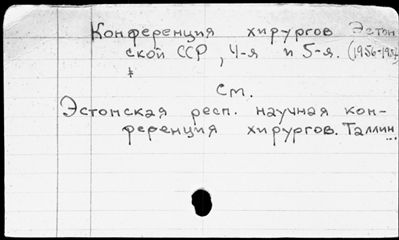 Конференция хирургов Эстон
ской ССР, 4-я и 5-я.
см.
Эстонская респ. научная кон-
ференция хирургов. Таллин...